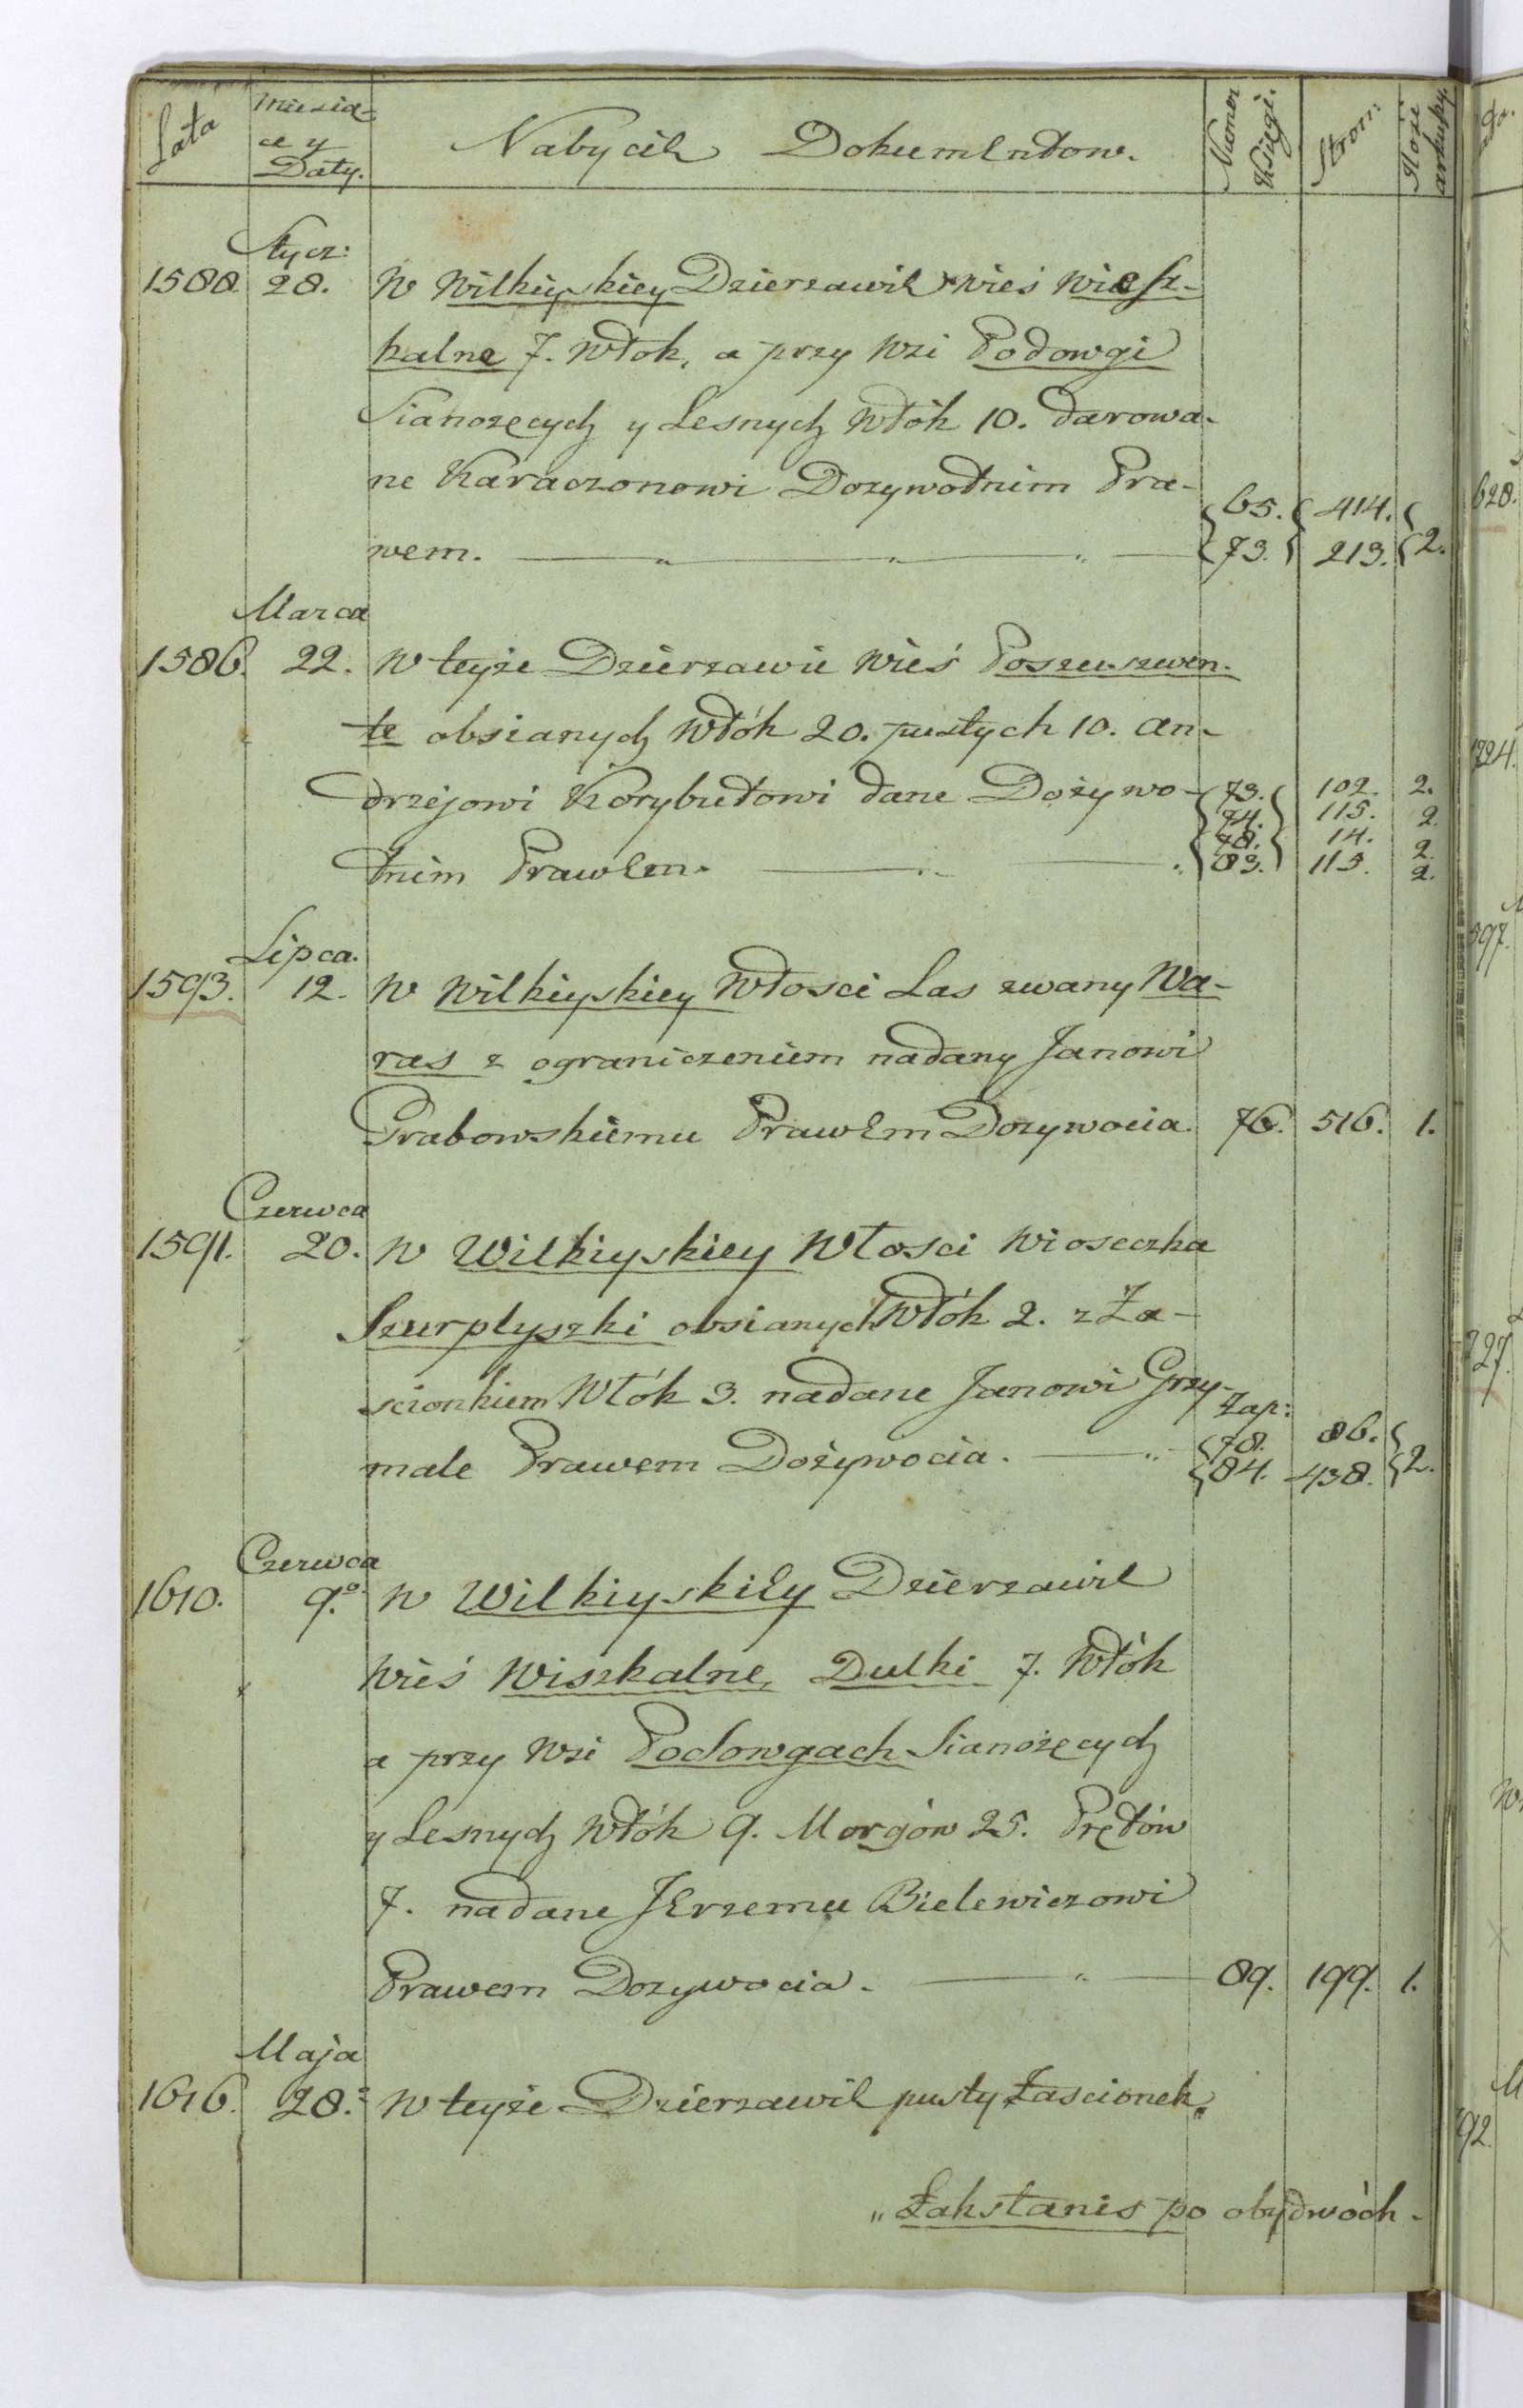 Lata
Miesią-
ce y
Daty.
Nabycie Dokumentow.
Numer
Księgi.
Stron:
Ilość
arkuszy
Stycz:
1588. 28. W Wilkiyskiey Dzierzawie wieś Wiesz-
kalne 7. Włok, a przy Wsi Podowgi
Sianożęcych y Lesnych Włók 10. darowa-
ne Karaczonowi Dozywotnim Pra-
65. 414.
wem. 73. 213. 2.
Marca
1586. 22. W teyże Dzierzawie Wieś Poszuszwen-
te obsianych Włók 20. pustych 10. An-
drzejowi Korybutowi dane Dożywo-
73. 102. 2.
74. 115. 2.
78. 14. 2.
tnim Prawem. 83. 115. 2.
Lipca.
1593. 12. W Wilkiyskiey Włosci Las zwany Wa-
ras z ograniczeniem nadany Janowi
Grabowskiemu Prawem Dozywocia. 76. 516. 1.
Czerwca
1591. 20. W Wilkiyskiey Włosci Wioseczka
Szurplyszki obsianych Włók 2. z Za-
scionkiem Włók 3. nadane Janowi Grzy-
Zap:
78. 86.
male Prawem Dożywocia. 84. 438. 2.
Czerwca
1610. 9.° W Wilkiyskiey Dzierzawie
Wieś Wiszkalne, Dulki 7. Włók
a przy Wsi Podowgach Sianożęcych
y Lesnych Włók 9. Morgów 25. Prętów
7. nadane Jerzemu Bielewiczowi
Prawem Dozywocia. 89. 199. 1.
Maja
1616. 28. W teyże Dzierzawie pusty Zascionek
„Zakstanis po obydwóch-